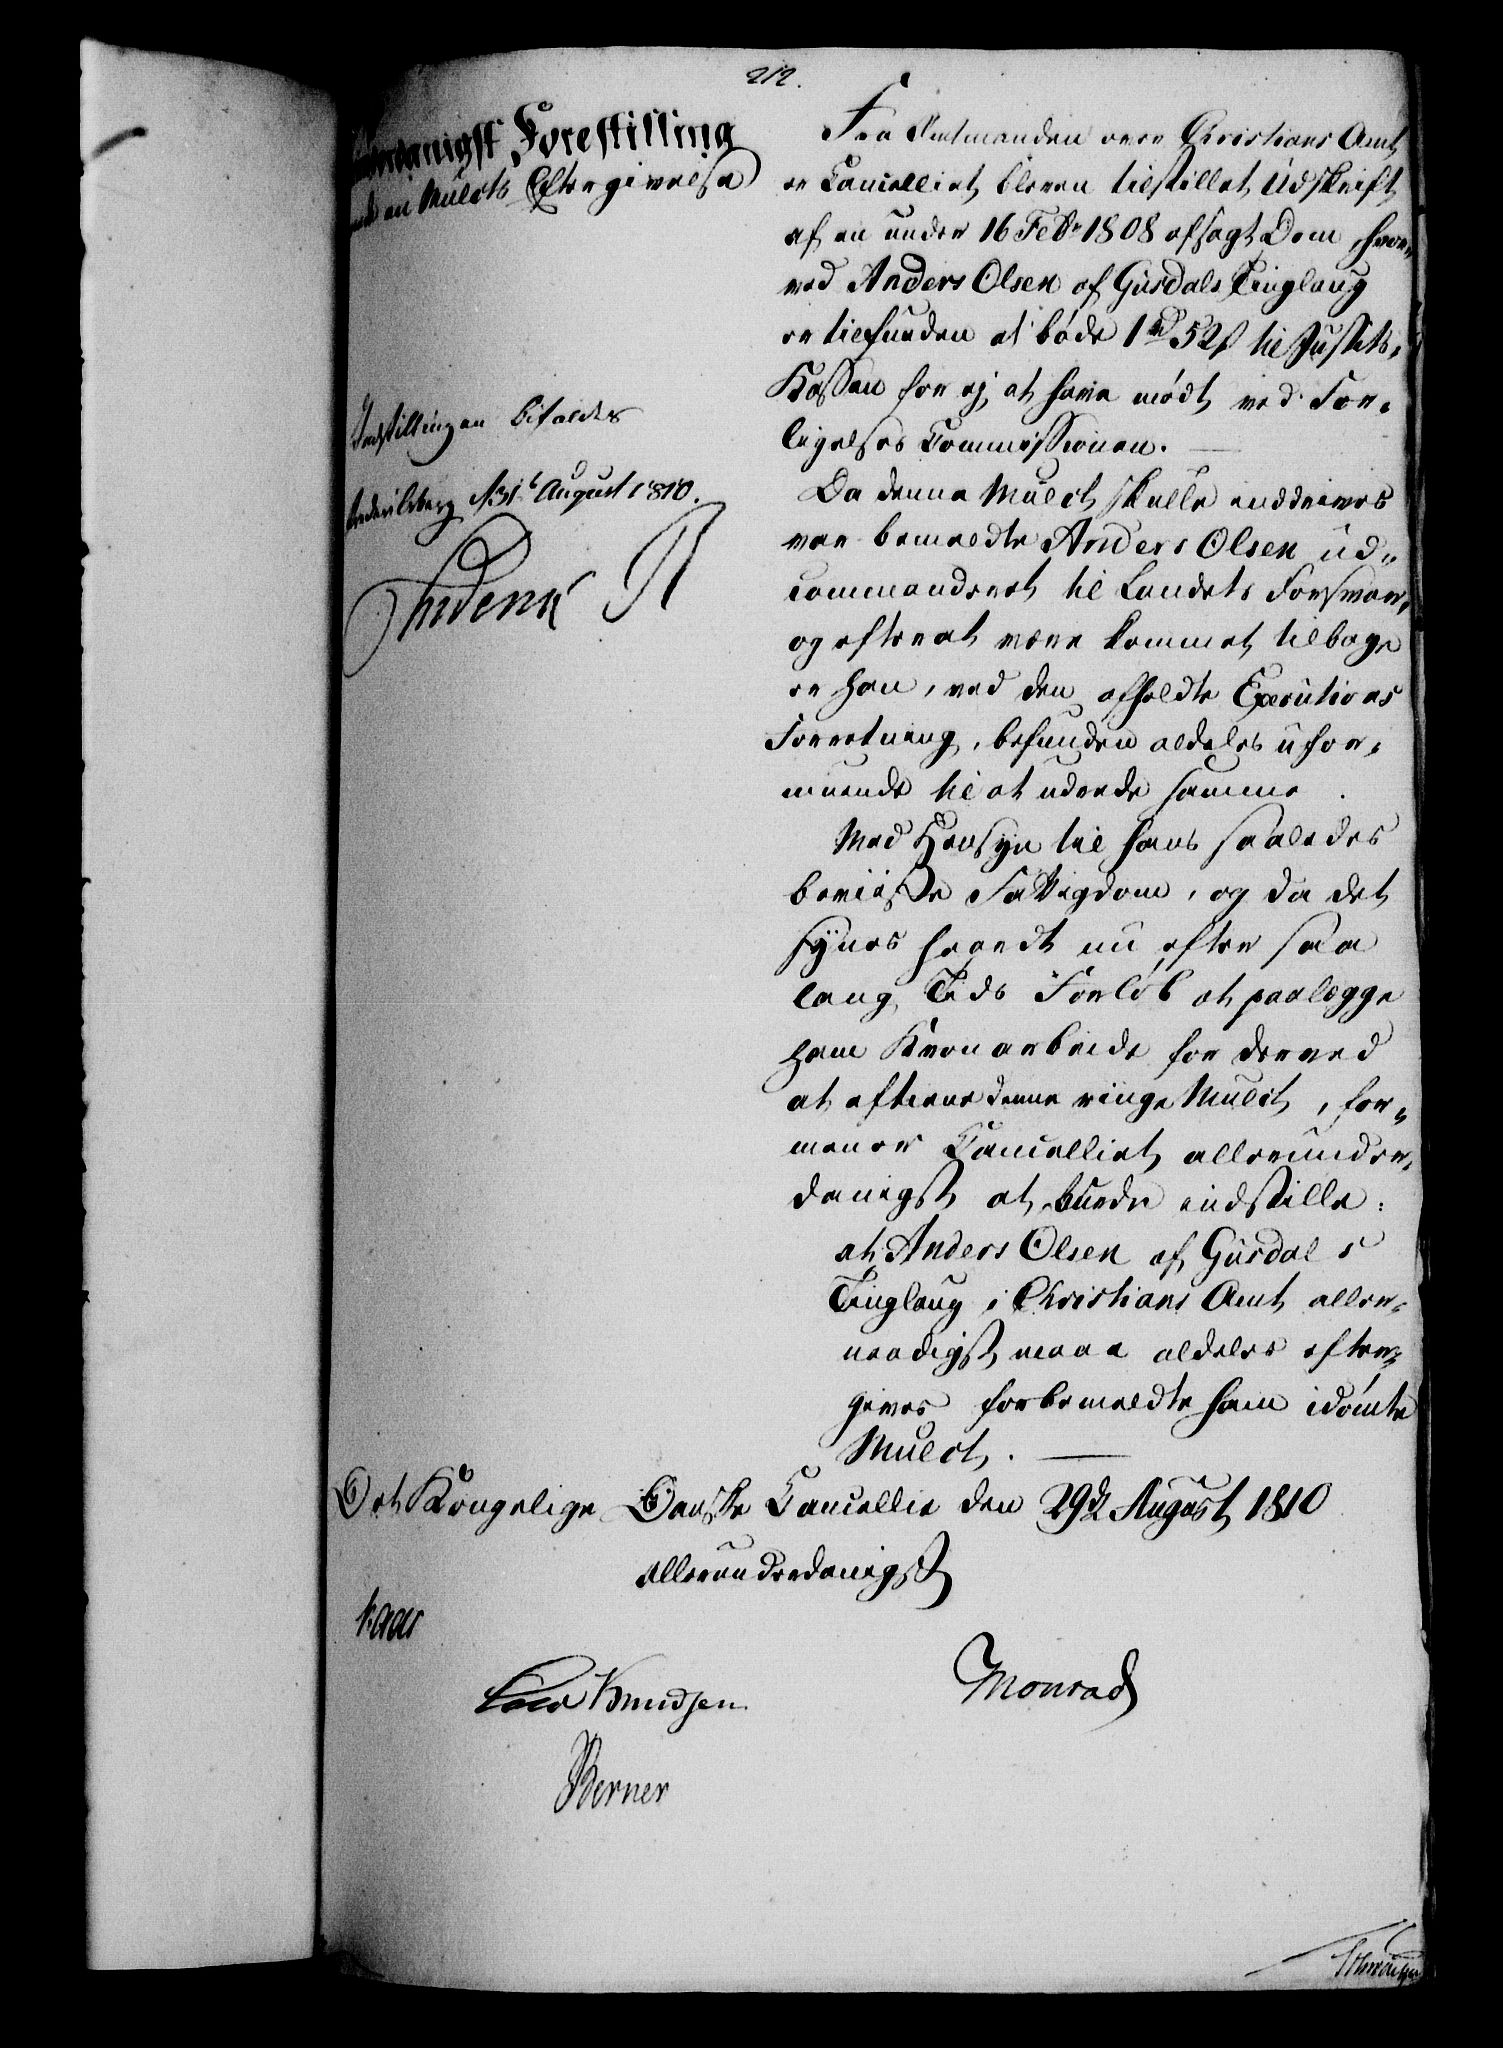 212.
Forestilling
en Mulcts Eftergivelse
Indstillingen bifaldes
d 31t August 1810.
Friderik R
Fra Amtmanden over Christians Amt
er Cancelliet bleven tilstillet Udskrift
af en under 16 Febr 1808 afsagt Dom, hvor„
ved Anders Olsen af Gusdals Tinglaug
er tilfunden at bøde 1 rd 52 s til Justits„
Kassen for ej at have mødt ved For„
ligelses Commissionen.
Da denne Mulct skulle inddrives
var bemeldte Anders Olsen ud„
commanderet til Landets Forsvar,
og efterat være kommet tilbage
er han, ved den afholdte Executions
Forretning, befunden aldeles ufor„
muende til at udrede samme.
Med Hensyn til hans saaledes
beviiste Fattigdom, og da det
synes haardt nu efter saa
lang Tids Forløb at paalægge
ham Kronarbeide for derved
at aftiene denne ringe Mulct, for„
mener Cancelliet allerunder„
danigst at burde indstille:
at Anders Olsen af Gusdals
Tinglaug i Christians Amt aller„
naadigst maae aldeles efter„
gives forbemeldte ham idømte
Mulct.
Det Kongelige Danske Cancellie den 29d August 1810
allerunderdanigst
Kaas
Cold Knudsen
Monrad
Berner